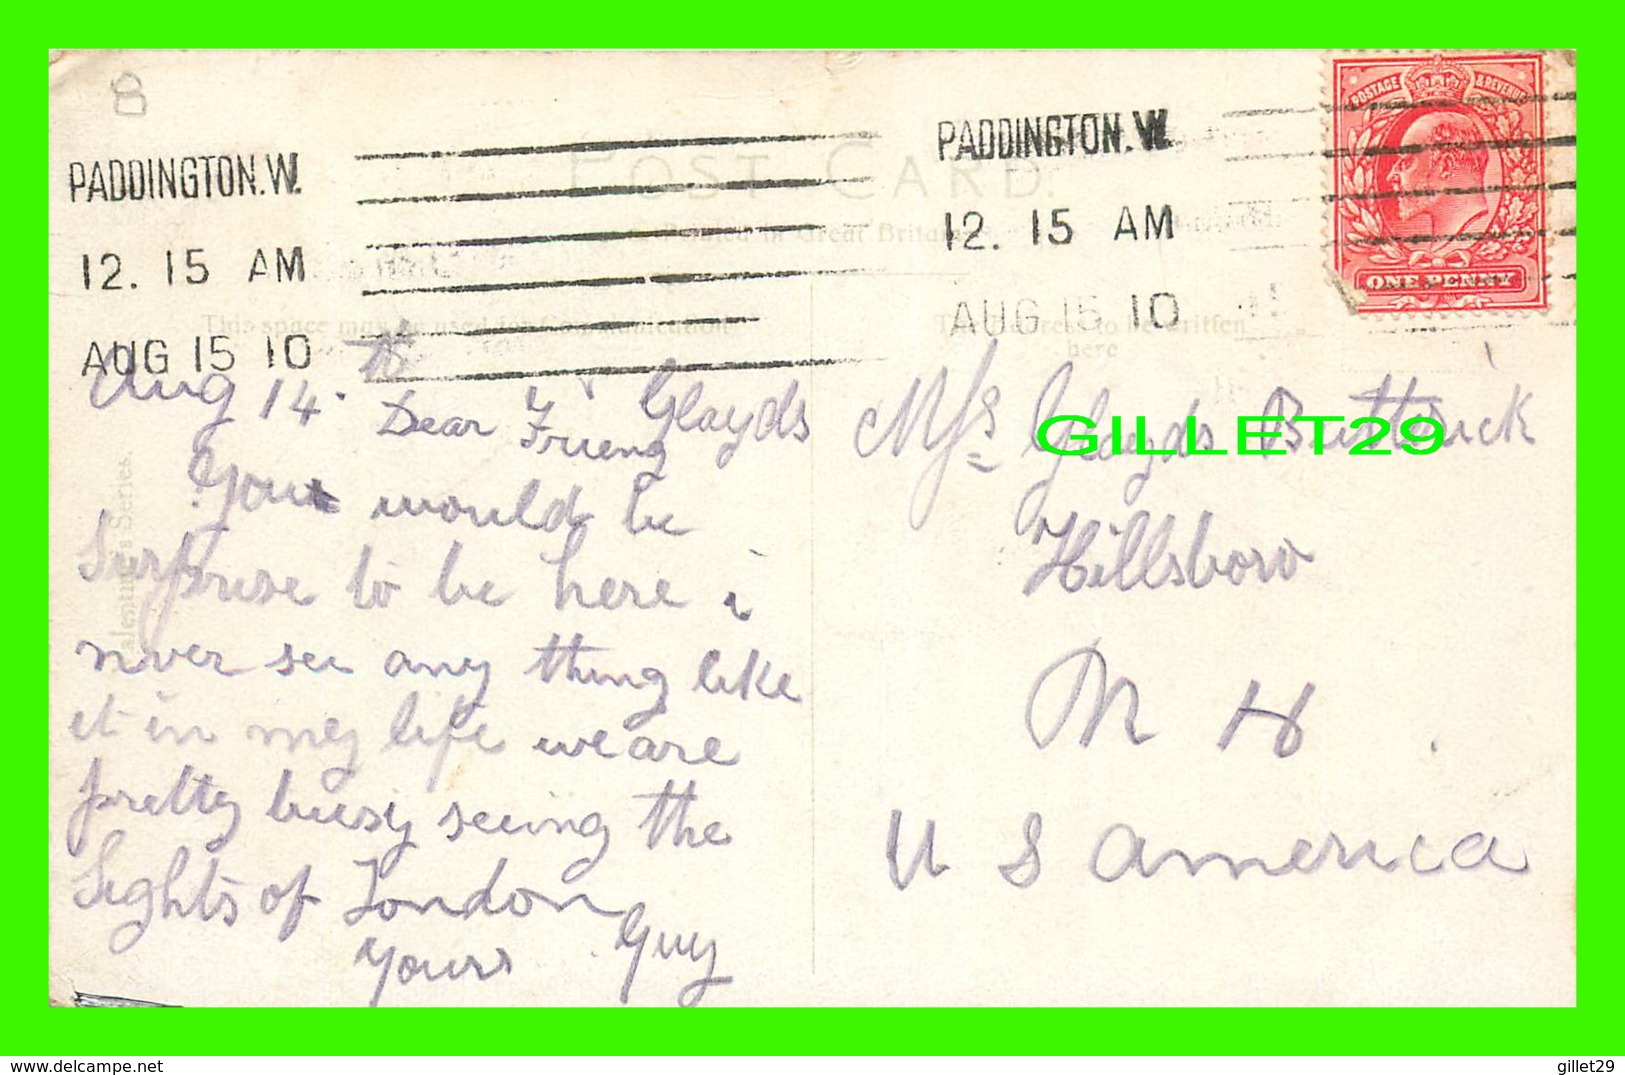 8
PADDINGTON.W.
12. 15 AM
AUG 15 10
PADDINGTON.W.
12. 15 AM
AUG 15 10
POSTAGE & REVENUE
ONE PENNY
POST CARD.
Printed in Great Britain
This space may be used for Communication
The Address to be written
here
Valentine's Series.
Aug 14.th
Dear Friend Glayds
You would be
Surprise to be here i
never see any thing like
it in my life we are
pretty busy seeing the
Sights of London
Yours Guy
Glayds Butterick
Hillsboro
N H
U S America
GILLET29
http://www.delcampe.net
gillet29